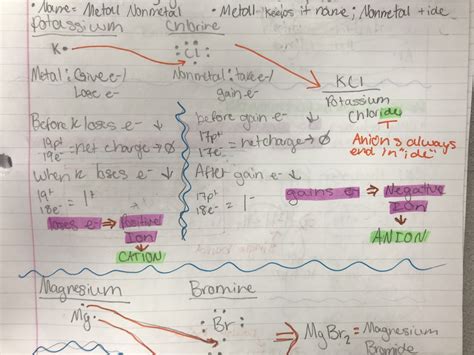 • Name = Metal Nonmetal • Metal keeps it name; Nonmetal + ide
Potassium Chlorine
K• Cl
Metal: Give e-/ Nonmetal: take e-/
Lose e- gain e-
KCl
Potassium
Chloride
Anions always
end in "ide"
Before K loses e- ↓ before gain e- ↓
19p+ = net charge → 0 17p+ = net charge → 0
19e- 17e-
When K loses e- ↓ After gain e- ↓
19+ = 1+ 17p+ = 1-
18e- 18e-
loses e- ⇒ Positive gains e- ⇒ Negative
Ion Ion
↓ ↓
CATION ANION
Magnesium Bromine
Mg• Br ⇒ MgBr2 = Magnesium
Bromide